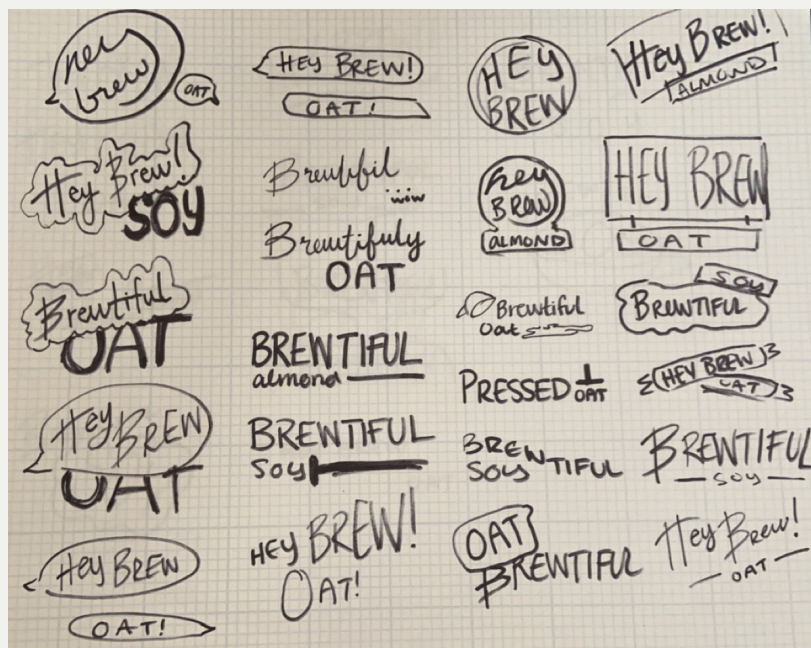 hey
brew
OAT
Hey Brew!
SOY
Brewtiful
OAT
Hey BREW
OAT
Hey BREW
OAT!
HEY BREW!
OAT!
wow
Brewtifuly
OAT
BREWTIFUL
almond
BREWTIFUL
SOY
HEY BREW!
OAT!
HEY
BREW
hey
BREW
ALMOND
Brewtiful
Oat
PRESSED
OAT
BREWTIFUL
SOY
OAT
BREWTIFUL
Hey BREW!
ALMOND
HEY BREW
OAT
SOY
BREWTIFUL
HEY BREW
OAT
BREWTIFUL
SOY
Hey Brew!
OAT